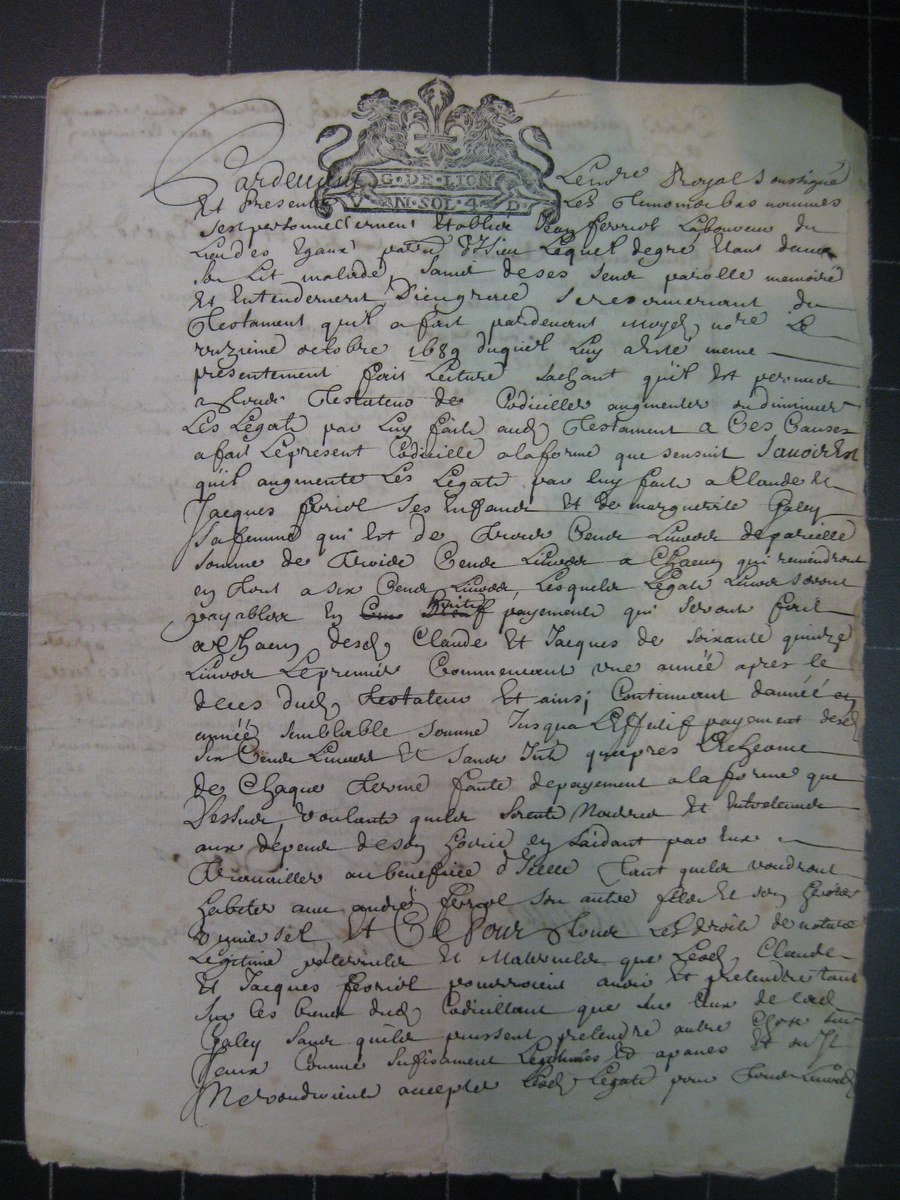 G·DE·LION
V·N·SOL·4·D·
Pardevant Le nore Royal soustigné
Et presents Les themoins bas nommes
sest personnellement Establie Jean ferriol Laboureur du
Lieu des Egaux Lequel degré Etant dans
Son Lit malade, saind de ses sens parolle memoire
Et Entendement Dieu grace se resouvenant du
Testament qu'il a fait pardevant moyd nore Le
octobre 1689 duquel Luy a esté meme
presentement fait Lecture sachant qu'il Est permis
a tous Testateurs de Codiciller augmenter ou diminuer
Les Legats par Luy faits aud Testament a Ces Causes
a fait Le present Codicille a la forme que sensuit Savoir Est
qu'il augmente Les Legats par luy faits a Claude Et
Jacques ferriol ses Enfants Et de marguerite Galey
sa femme qui Est de Trois Cents Livres de pareille
somme de Trois Cents Livres a Chacun qui reviendront
en tout a six Cents Livres, Lesquels Legats Livres seront
payables En payements qui seront faits
a Chacun desd Claude Et Jacques de soixante quinze
Livres Le premier Commencant une année apres le
deces dud Testateur Et ainsi Continuant dannée en
année semblable somme Jusqua L'Effetif payement desd
six Cents Livres Et sans qu'apres L'Echeance
de Chaque terme faute de payement a la forme que
Dessus, voulant quils soient Nourris Et Entretenus
aux depens de son hoirie en s'aidant par Eux
a travailler au benefice d'Icelle tant quils voudront
habiter avec andré ferriol son autre fils Et son heritier
universel Et Ce Pour tous Les droits de nature
Legitime paternels Et Maternels que Lesd Claude
Et Jacques ferriol pourroient avoir Et pretendre tant
sur les biens dud Codicillant que sur Ceux de lad
Galey sans quils puissent pretendre autre Chose sur
Jceux Comme sufisament Legitimés Et apanés Et ou Jls
Ne voudroient accepter lesd Legats pour tous Lesd